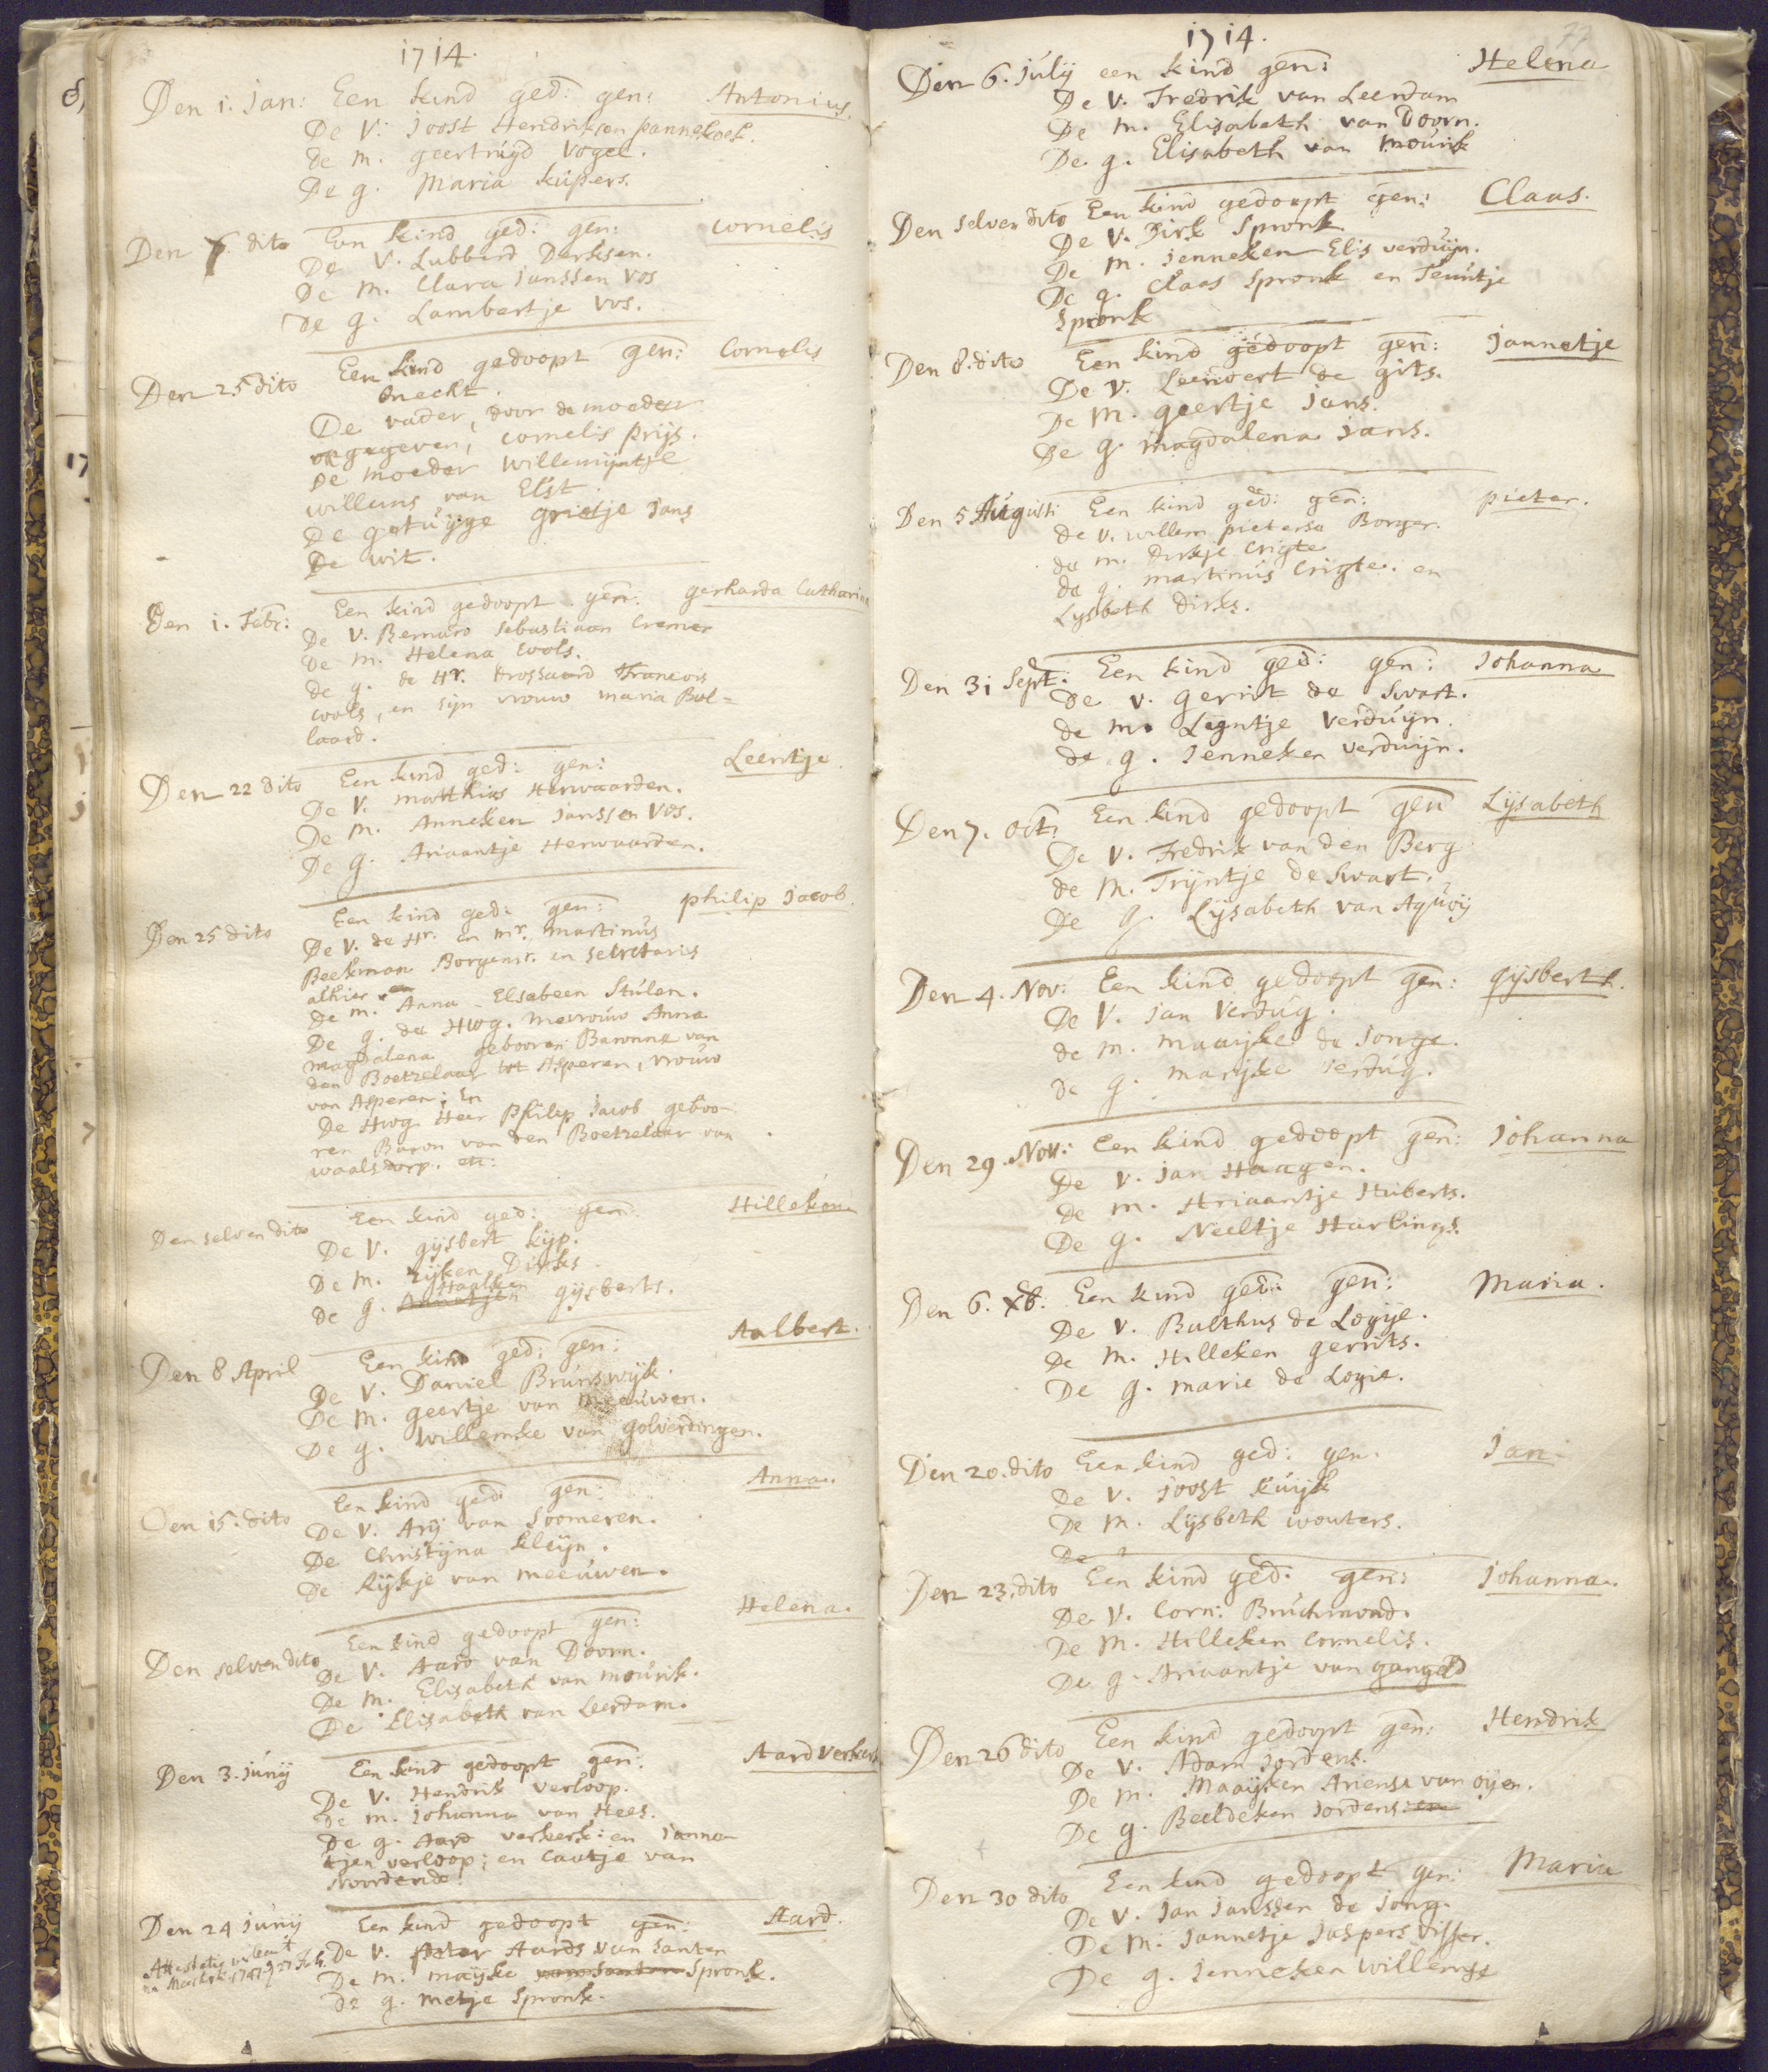 1714.
Den 1. Jan: Een kind ged: gen: Antonius.
De V: Joost Hendriksen pannekoek.
de m. geertruyd Vogel.
De g. Maria kupers.
Den dito Een kind ged: gen: Cornelis
De V. Lubberd Derksen.
De m. Clara Janssen Vos
De g. Lambertje Vos.
Den 25 dito Een kind gedoopt gen: Cornelis
onecht.
De vader, door de moeder
opgegeven, cornelis prijs.
De moeder Willemijntje
willems van Elst.
De getuyge grietje Jans
De wit.
Den 1. Febr: Een kind gedoopt gen: gerharda Catharina
De V. Bernard Sebastiaan Cremer
de m. Helena Cools.
de g. de Hr. drossaard Francois
Cools, en sijn vrouw maria Bol=
laard.
Den 22 dito Een kind ged: gen: Leentje.
De V. matthias Herwaarden.
De m. Anneken Janssen Vos.
De g. Ariaantje Herwaarden.
Den 25 dito Een kind ged: gen: philip Jacob.
De V. de Hr. en mr. martinus
Beekman Borgemr. en Secretaris
alhier
De m. Anna Elsabeen Stulen.
De g. de Hwg. mevrouw Anna
magdalena gebooren Baronne van
den Boetzelaar tot Asperen, vrouw
van Asperen; En
De Hwg. Heer Philip Jacob geboo-
ren Baron van den Boetzelaar van
waalsdorp. etc:
Den selven dito Een kind ged: gen: Hilleken
De V. gijsbert kijp.
De m. Eijken Dirks
De g. gijsberts.
Den 8 April Een kind ged: gen: Aalbert.
De V. Daniel Brunswijk.
De m. geertje van meeuwen.
De g. Willemke van golverdingen.
Den 15. dito Een kind ged: gen: Anna.
De V. Arij van Soomeren.
De Christijna kleijn.
De Rijkje van meeuwen.
Den selven dito Een kind gedoopt gen: Helena.
De V. Aard van Doorn.
De m. Elisabeth van mourik.
De Elisabeth van Leerdam.
Den 3. Junij Een kind gedoopt gen: Aard Verkerk
De V. Hendrik verloop.
De m. Johanna van Hees.
De g. Aard verkerk: en Janne
tjen verloop; en Caatje van
Noordende.
Den 24 Junij Een kind gedoopt gen: Aard.
De V. peter Aards van Santen
De m. maijke van Santen Spronk.
De g. metje Spronk.
1714.
77
Den 6. July een kind gen: Helena
De V. Fredrik van Leerdam
De m. Elisabeth van Doorn.
De g. Elisabeth van mourik
Den selven dito Een kind gedoopt gen: Claas.
De V. Dirk Spronk.
De m. Jenneken Elis verduijn.
De g. Claas Spronk en Teuntje
Spronk
Den 8. dito Een kind gedoopt gen: Jannetje
De V. Leendert de gits.
De m. geertje Jans.
De g. magdalena Jans.
Den 5 Augusti Een kind ged: gen: pieter.
de V. willem pieterse Borger.
de m. dirkje Crigte
de g. martinus Crigte. en
Lysbeth dirks.
Den 31 Sept: Een kind ged: gen: Johanna
De V. gerrit de Swart.
de m. Leyntje Verduyn.
de g. Jenneken verduyn.
Den 7. Oct: Een kind gedoopt gen Lijsabeth
De V. Fredrik van den Berg
de m. Trijntje de Swart.
De g. Lijsabeth van Aquoij
Den 4. Nov: Een kind gedoopt gen: gijsbert.
De V. Jan Verdug.
de m. maaijke de Jonge.
de g. marijke verdug.
Den 29. Nov: Een kind gedoopt gen: Johanna
De V. Jan Haagen.
De m. Ariaantje Huberts.
De g. Neeltje Harlings.
Den 6. Xb: Een kind ged: gen: Maria.
De V. Balthus de Logije.
De m. Hilleken gerrits.
De g. marie de Logie.
Den 20. dito Een kind ged: gen. Jan
De V. Joost Kuijk
De m. Lijsbeth wouters.
De
Den 23. dito Een kind ged: gen: Johanna.
De V. Corn: Bruchmond.
De m. Hilleken Cornelis.
De g. Ariaantje van gangel
Den 26 dito Een kind gedoopt gen: Hendrik
De V. Adam Jordens.
De m. Maaijken Ariense van oijen.
De g. Beeldeken Jordens: en
Den 30 dito Een kind gedoopt gen: Maria
De V. Jan Janssen de Jong.
De m. Jannetje Jaspers Visser.
De g. Jenneken willemse